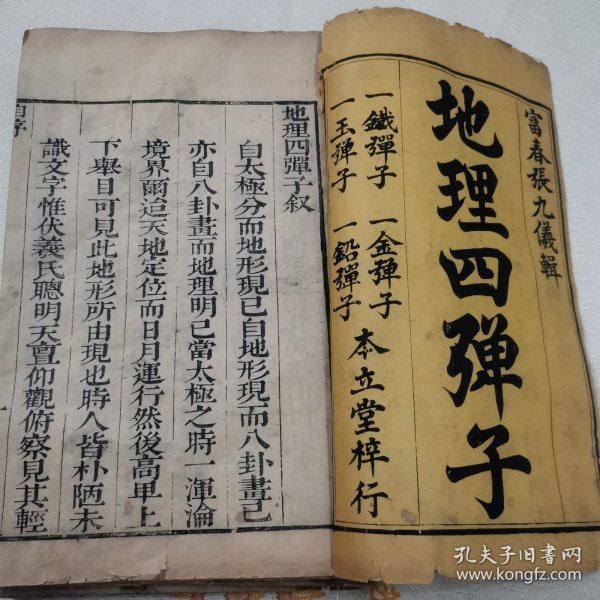 富春張九儀輯
地理四弹子
一鐵彈子
一金弹子
一玉弹子
一鉛彈子
本立堂梓行
地理四彈子叙
自太極分而地形現已自地形現而八卦畫已
亦自八卦畫而地理明已當太極之時一渾淪
境界爾迨天地定位而日月運行然後高卑上
下舉目可見此地形所由現也時人皆朴陋未
識文字惟伏羲氏聰明天亶仰觀俯察見其輕
自序
孔夫子旧书网
www.kongfz.com